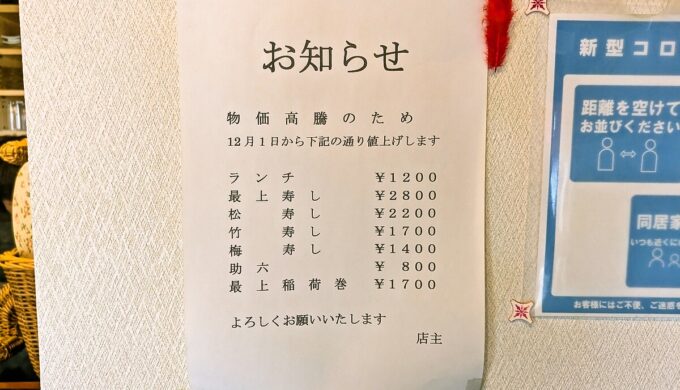 お知らせ
物価高騰のため
12月1日から下記の通り値上げします
ランチ ￥1200
最上寿し ￥2800
松寿し ￥2200
竹寿し ￥1700
梅寿し ￥1400
助六 ￥800
最上稲荷巻 ￥1700
よろしくお願いいたします
店主
新型コロ
距離を空けて
お並びください
同居家
いつも近くに
お客様にはご不便、ご迷惑を